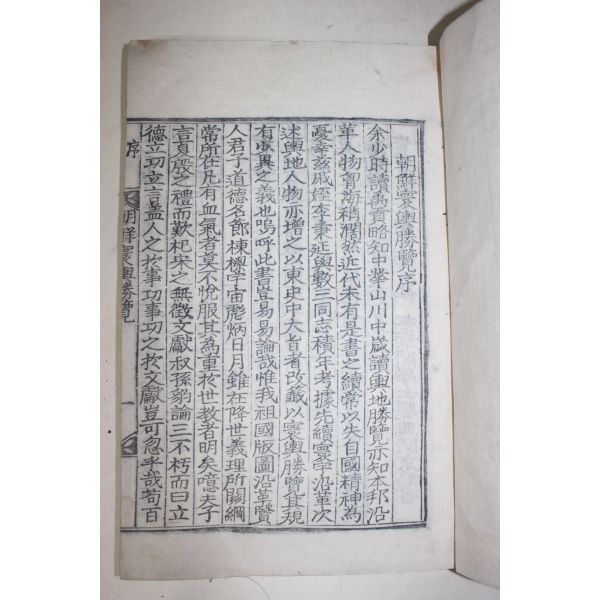 朝鮮寰輿勝覽序
余少時讀禹貢略知中華山川中歲讀輿地勝覽亦知本邦沿
革人物曾海稍濶然近代未有是書之續常以失自國精神爲
憂幸玆戚姪李秉延與數三同志積年考據先續寰宇沿革次
述輿地人物亦增之以東史中大旨者改籤以寰輿勝覽其規
有少異之義也嗚呼此書豈易易論哉惟我祖國版圖沿革賢
人君子道德名節棟樑宇宙彪炳日月雖在降世義理所關綱
常所在凡有血氣者莫不悅服其為重於世教者明矣噫夫子
言夏殷之禮而歎杞宋之無徵文獻叔孫豹論三不朽而曰立
德立功立言盖人之於事功事功之於文獻豈可忽乎哉苟百
序
朝鮮寰輿勝覽
一